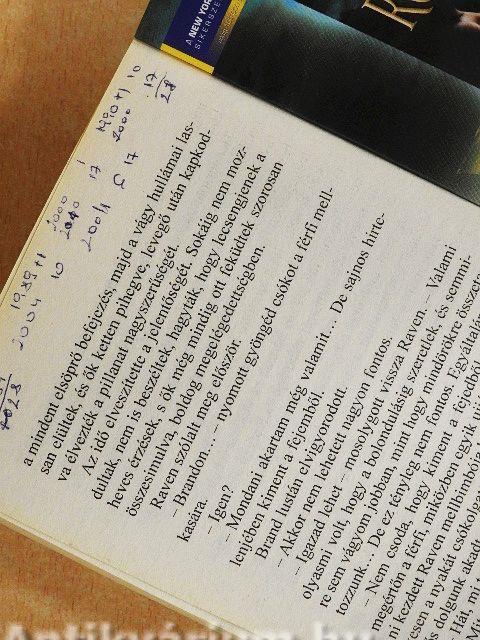 A NEW YOR
SIKERSZE
a mindent elsöprő befejezés, majd a vágy hullámai las-
san elültek, és ők ketten pihegve, levegő után kapkod-
va élvezték a pillanat nagyszerűségét.
Az idő elveszítette a jelentőségét. Sokáig nem moz-
dultak, nem is beszéltek, hagyták, hogy lecsengjenek a
heves érzések, s ők még mindig ott feküdtek szorosan
összesimulva, boldog megelégedettségben.
Raven szólalt meg először.
– Brandon… – nyomott gyöngéd csókot a férfi mell-
kasára.
– Igen?
– Mondani akartam még valamit… De sajnos hirte-
lenjében kiment a fejemből.
Brand lustán elvigyorodott.
– Akkor nem lehetett nagyon fontos.
– Igazad lehet – mosolygott vissza Raven. – Valami
olyasmi volt, hogy a bolondulásig szeretlek, és semmi-
re sem vágyom jobban, mint hogy mindörökre összeta
tozzunk… De ez tényleg nem fontos. Egyáltalán
– Nem csoda, hogy kiment a fejedből
megértőn a férfi, miközben egyik uj
i kezdett Raven mellbimbója
ben a nyakát csókolga
dolgunk akad
Hát, mi t